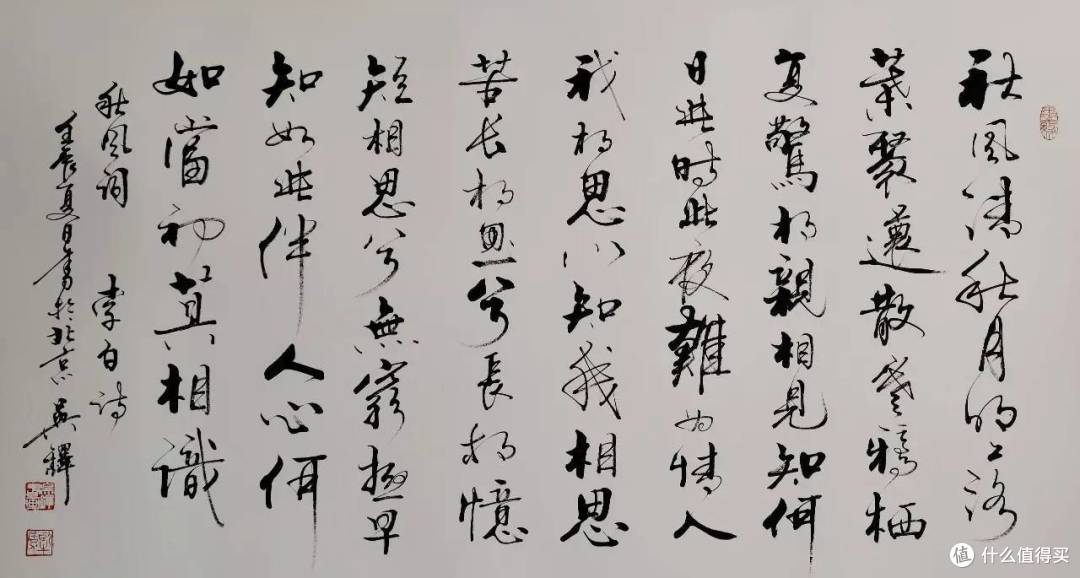 秋風清秋月明落
葉聚還散寒鴉栖
复驚相親相見知何
日此時此夜難为情入
我相思门知我相思
苦长相思兮長相憶
短相思兮無窮極早
知如此伴人心何
如當初莫相識
秋風词 李白诗
壬辰夏日書於北京
值 什么值得买